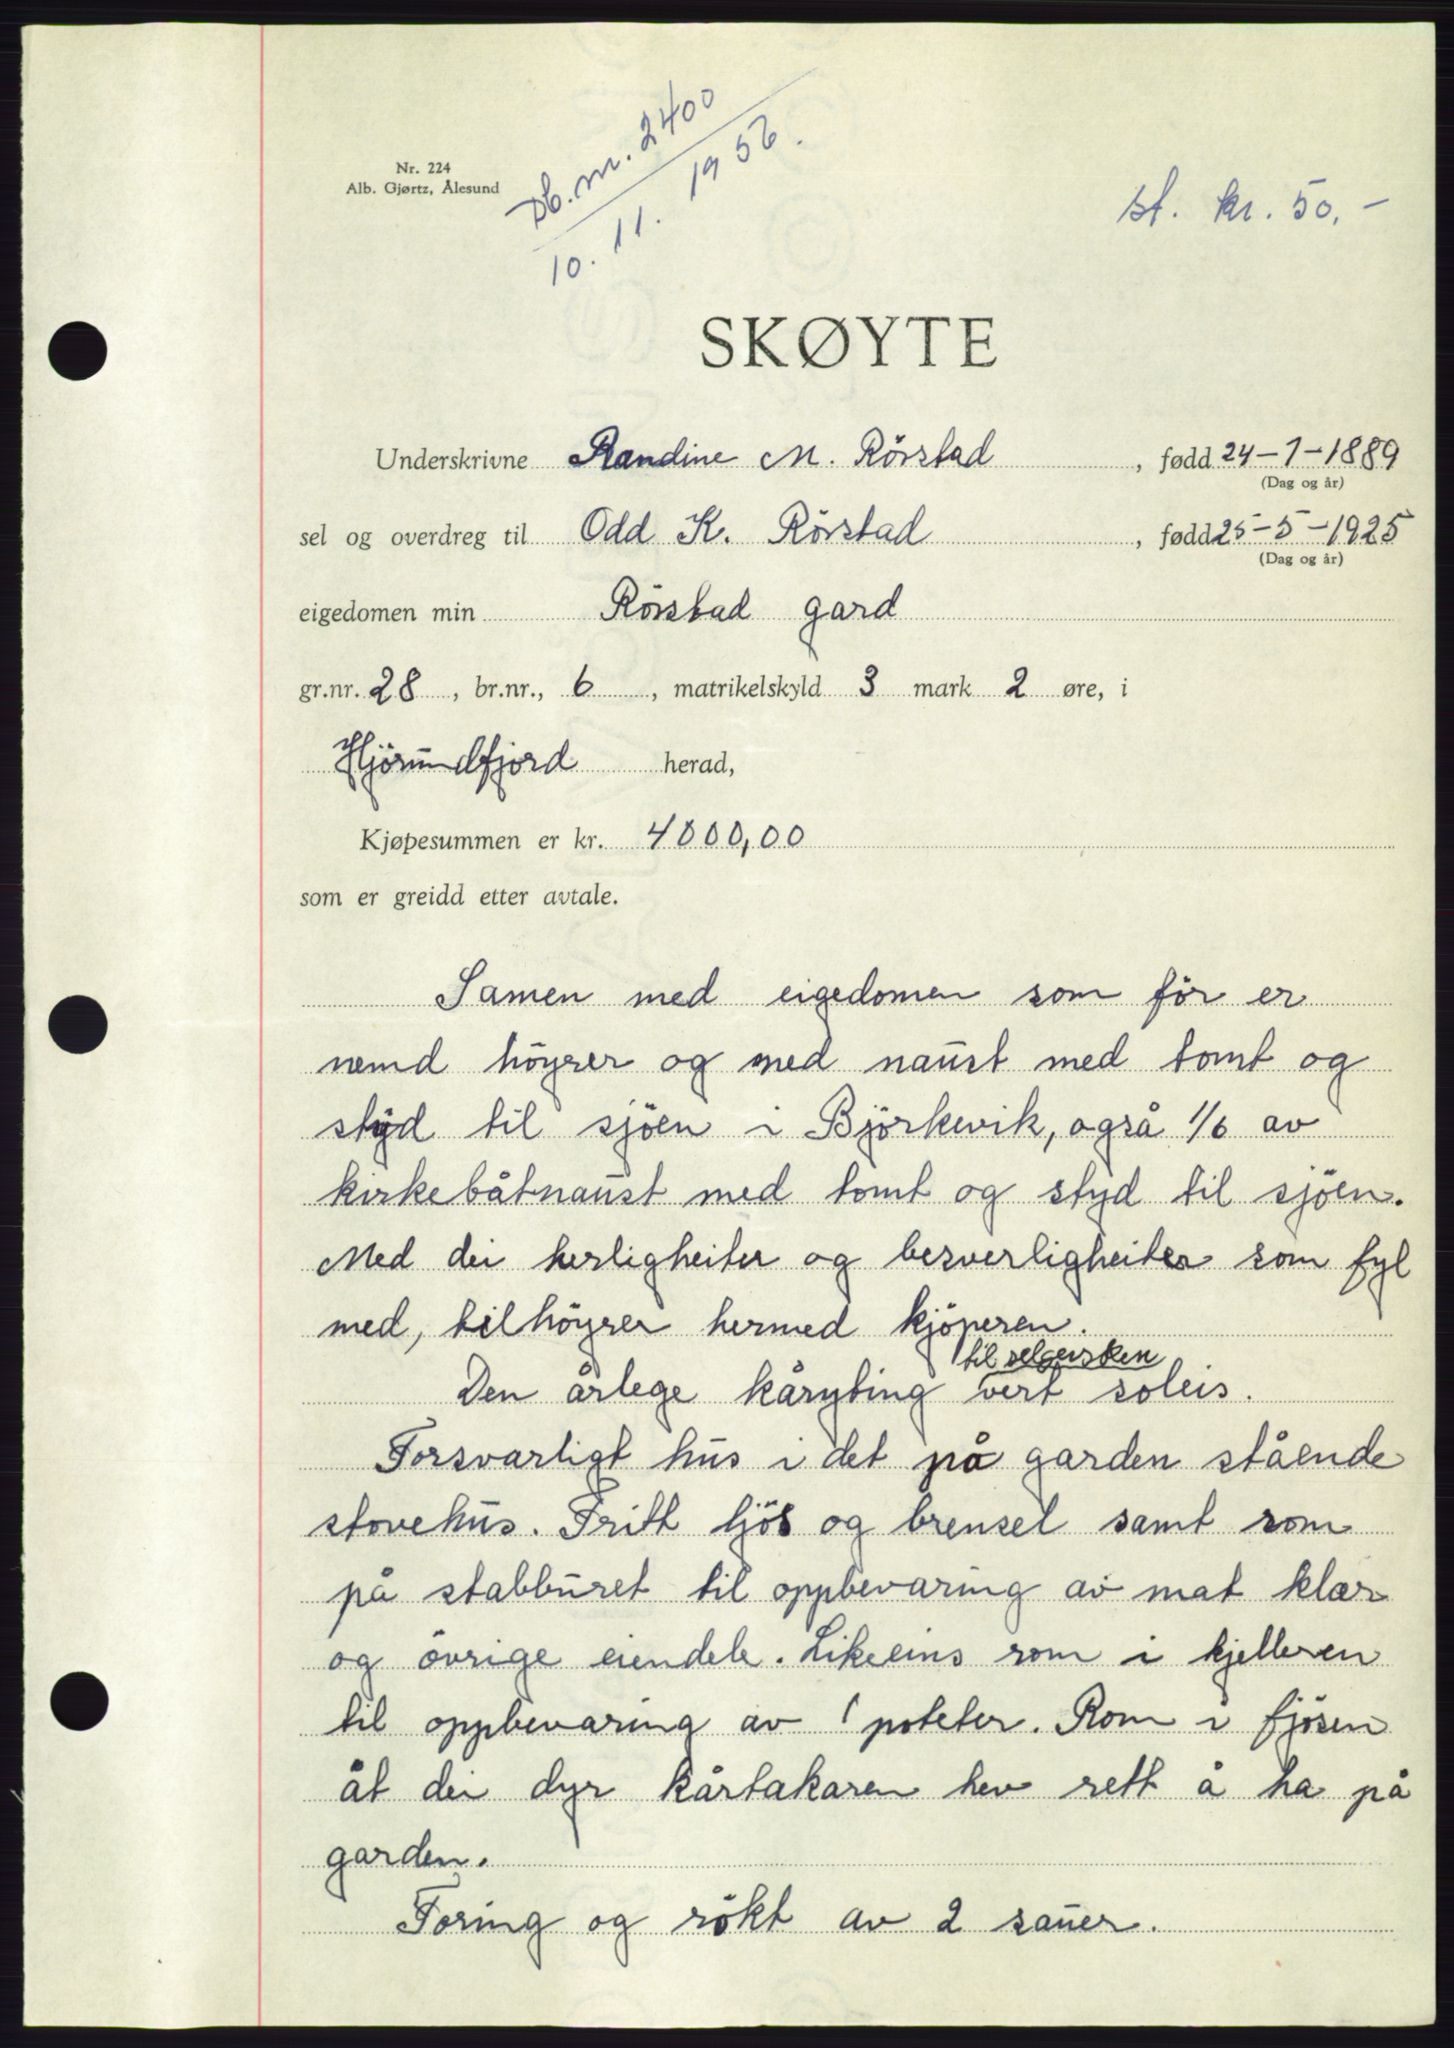 Nr. 224
Alb. Gjørtz, Ålesund
Db. nr. 2400
10. 11. 1956.
st. kr. 50,-
SKØYTE
Underskrivne Randine M. Rörstad, fødd 24-1-1889
(Dag og år)
sel og overdreg til Odd K. Rörstad, fødd 25-5-1925
(Dag og år)
eigedomen min Rörstad gard
gr.nr. 28, br.nr., 6, matrikelskyld 3 mark 2 øre, i
Hjörundfjord herad,
Kjøpesummen er kr. 4000,00
som er greidd etter avtale.
Samen med eigedomen som för er
nemd höyrer og med naust med tomt og
styd til sjöen i Björkevik, også 1/6 av
kirkebåtnaust med tomt og styd til sjöen.
Med dei herligheiter og besverligheiter som fyl
med, tilhöyrer hermed kjöperen.
til selgersken
Den årlege kåryting vert soleis.
Forsvarligt hus i det på garden stående
stovehus. Fritt ljös og brensel samt rom
på stabburet til oppbevaring av mat klær
og övrige eiendele. Likeeins rom i kjelleren
til oppbevaring av poteter. Rom i fjösen
åt dei dyr kårtakaren hev rett å ha på
garden.
Foring og rökt av 2 sauer.